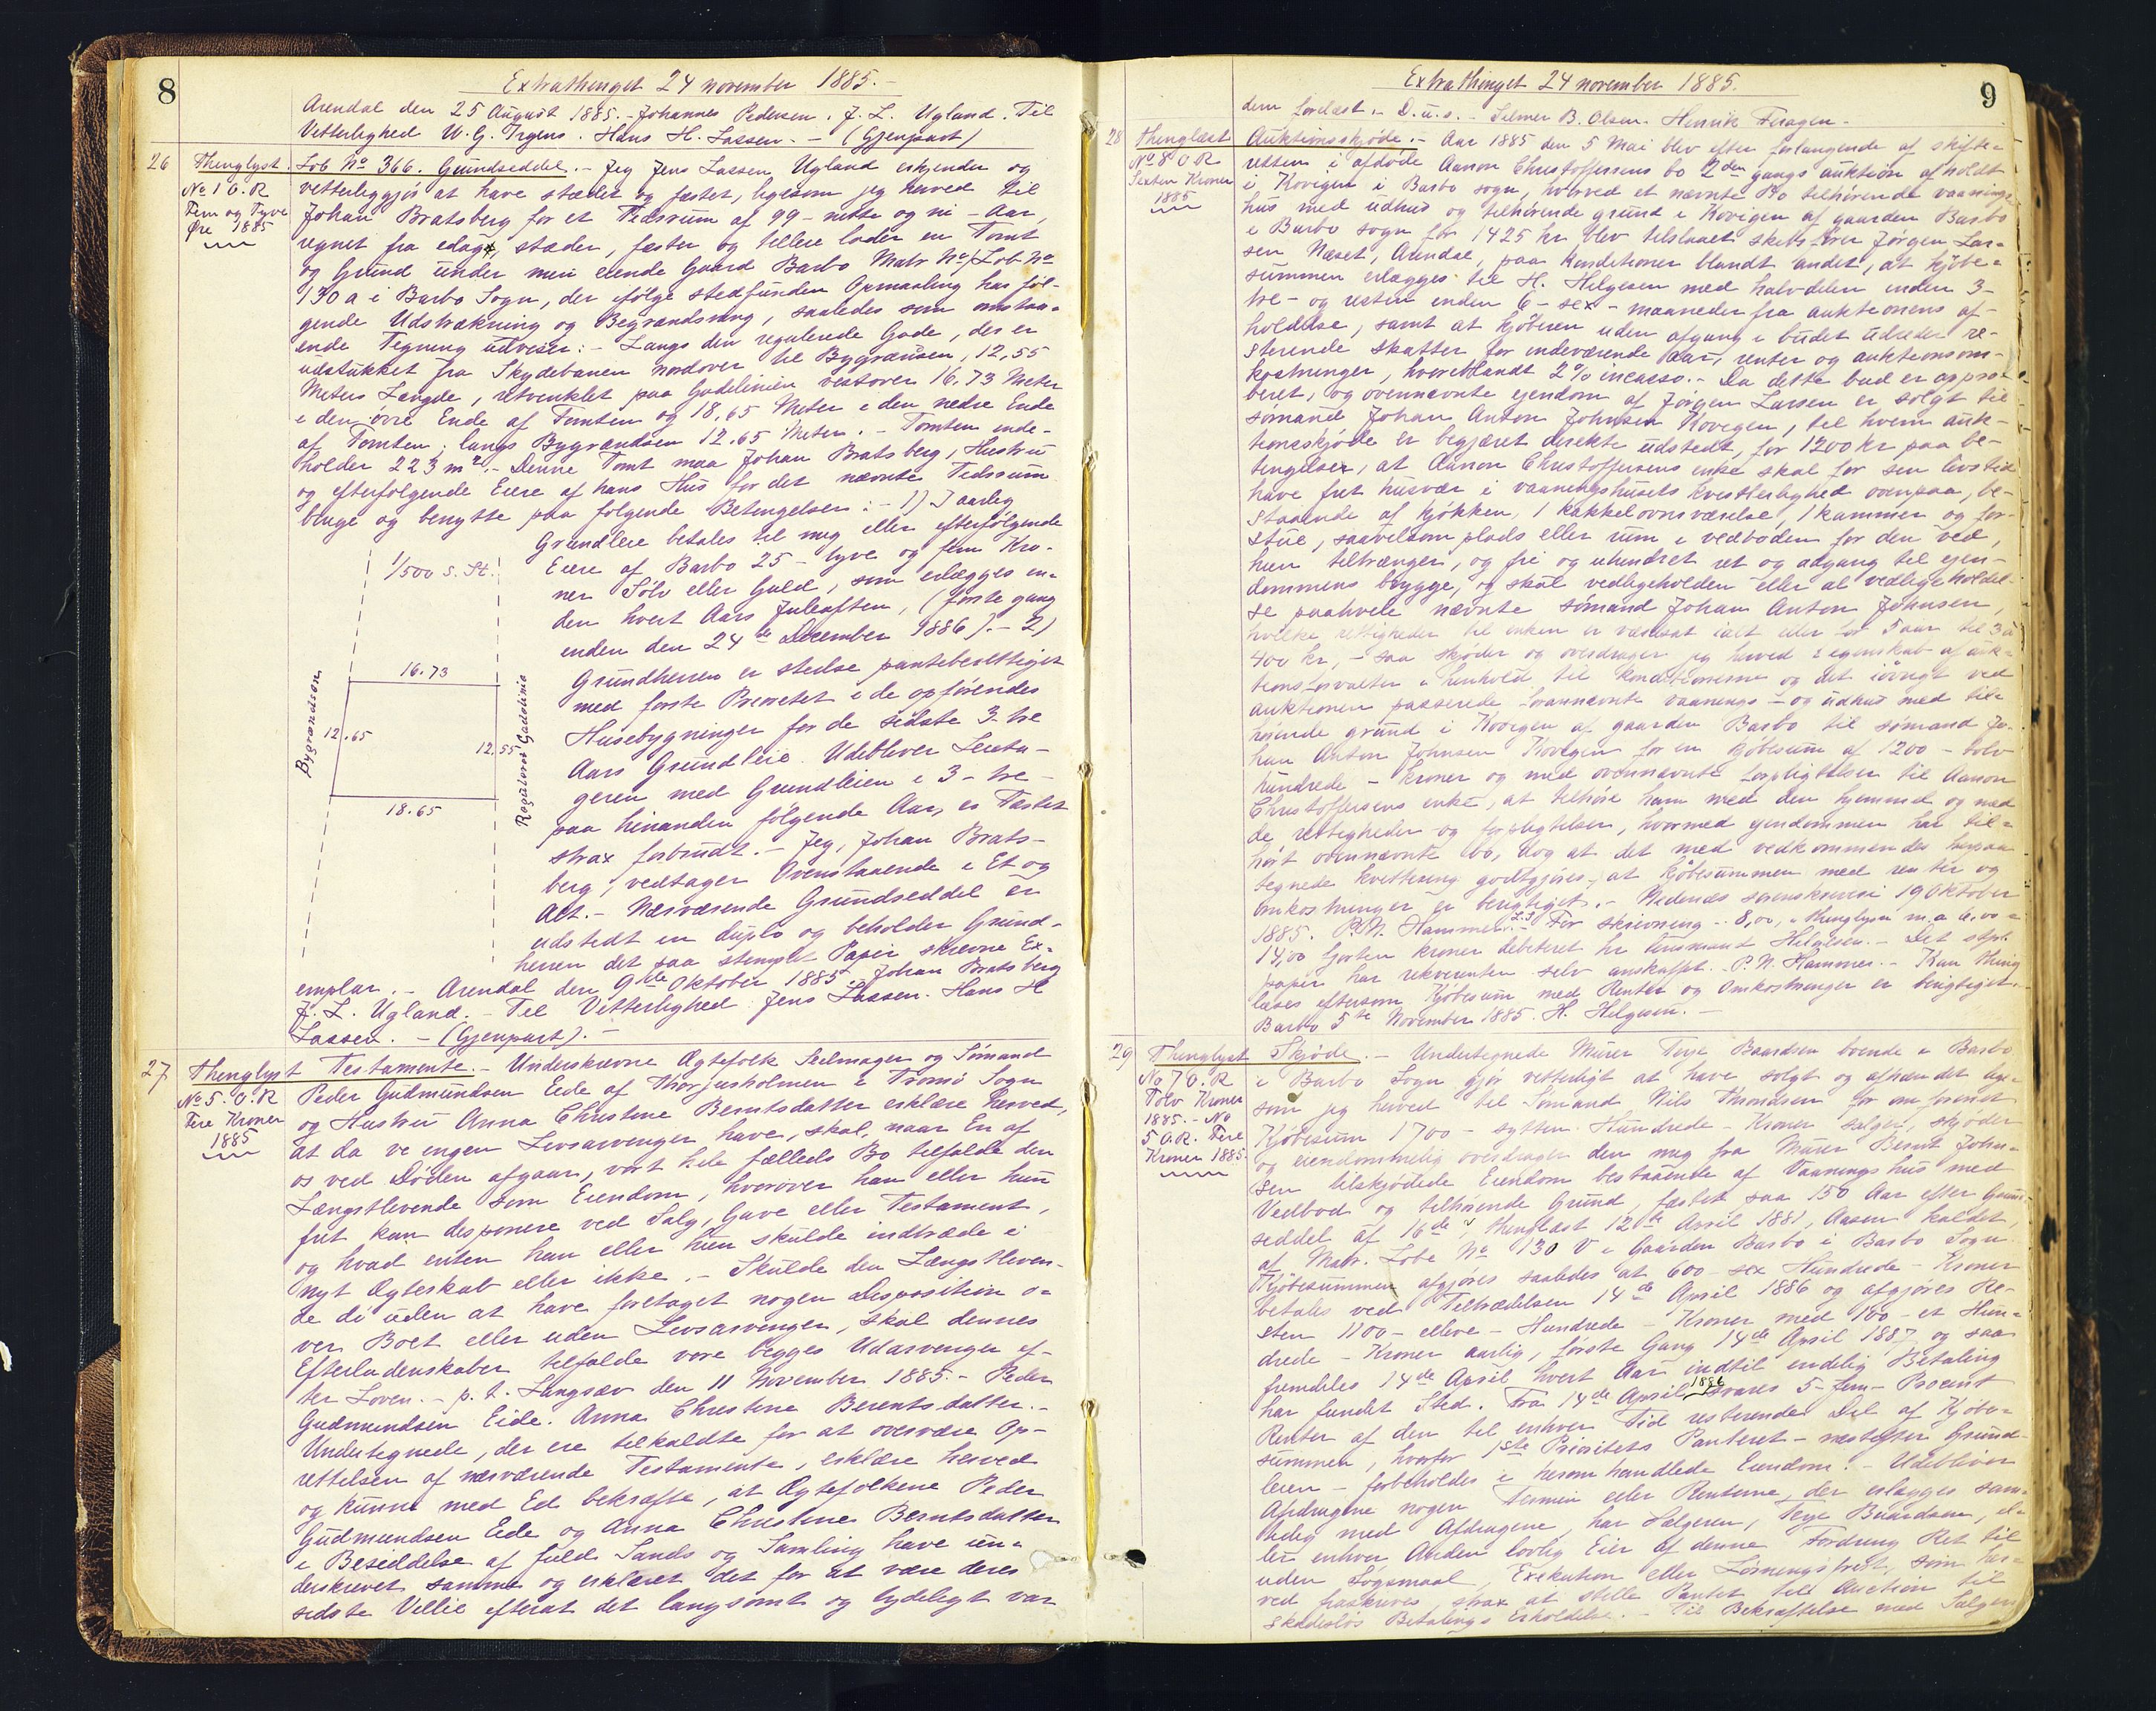 8
Extrathinget 24 november 1885.-
Arendal den 25 August 1885.- Johannes Pedersen. J. L. Ugland. Til
Vetterlighed U. G. Irgens. Hans H. Lassen. - (Gjenpart)
26
Thinglyst.
No 1 O.R
Fem og Tyve
Øre 1885
Lob No 366. Grundseddel.- Jeg Jens Lassen Ugland erkjender og
vetterliggjør at have stædet og fæstet, ligesom jeg herved til
Johan Bratsberg for et Tidsrum af 99 - nitte og ni - Aar,
regnet fra idag, stæder, fæster og tilleie lader en Tomt
og Grund under min eiende Gaard Barbo Matr No / Lob No
130 a i Barbo Sogn, der ifølge stedfunden Opmaaling har føl-
gende Udstrækning og Begrændsning, saaledes som omstaa-
ende Tegning udviser:- Langs den regulerede Gade, der er
udstukket fra Skydebanen nordover til Bygrændsen, 12,55
Meters Længde, retvinklet paa Gadelinien vestover 16.73 Meter
i den øvre Ende af Tomten og 18.65 Meter i den nedre Ende
af Tomten; langs Bygrændsen 12.65 Meter. - Tomten inde-
holder 223 m².- Denne Tomt maa Johan Bratsberg, Hustru
og efterfølgende Eiere af hans Hus for det nævnte Tidsrum
bruge og benytte paa følgende Betingelser: - 1) I aarlig
Grundleie betales til mig eller efterfølgende
Eiere af Barbo 25 - tyve og fem Kro-
ner Sølv eller Guld, som erlægges in-
den hvert Aars Juleaften, (første gang
inden den 24de December 1886).- 2)
Grundherren er stedse pantebevilttiget
med første Prioritet i de opførendes
Husebygninger for de sidste 3 - tre
Aars Grundleie. Udebliver Leieta-
geren med Grundleien i 3 - tre -
paa hinanden følgende Aar, er Fæstet
strax forbrudt. - Jeg, Johan Brats-
berg, vedtager Ovenstaaende i Et og
Alt.- Nærværende Grundseddel er
udstedt in duplo og beholder Grund-
herren det paa stemplet Papir skrevne Ex-
emplar.- Arendal den 9de Oktober 1885. Johan Bratsberg
J. L. Ugland.- Til Vitterlighed: Jens Lassen. Hans H
Lassen. - (Gjenpart).-
1/500 S. St.
16.73
Bygrændsen
12.65
12.55
Reguleret Gadelinie
18.65
27
Thinglyst
No 5. O.R
Fire Kroner
1885
Testamente.- Underskrevne Ægtefolk Seilmager og Sømand
Peder Gudmundsen Eide af Thorjusholmen i Tromø Sogn
og Hustru Anna Christine Berntsdatter erklære herved,
at da vi ingen Livsarvinger have, skal, naar En af
os ved Døden afgaar, vort hele fælleds Bo tilfalde den
Længstlevende som Eiendom, hvorover han eller hun
frit kan disponere ved Salg, Gave eller Testament,
og hvad enten han eller hun skulde indtræde i
nyt Ægteskab eller ikke. - Skulde den Længstleven-
de dø uden at have foretaget nogen Disposition o-
ver Boet eller uden Livsarvinger, skal dennes
Efterladenskaber tilfalde vore begges Udarvinger ef-
ter Loven. - p. t. Langsæv den 11 November 1885.- Peder
Gudmundsen Eide. Anna Christine Berentsdatter.-
Undertegnede, der ere tilkaldte for at overvære Op-
rettelsen af nærværende Testamente, erklære herved
og kunne med Ed bekræfte, at Ægtefolkene Peder
Gudmundsen Eide og Anna Christine Berntsdatter
i Besiddelse af fuld Sands og Samling have un-
derskrevet samme og erklæret det for at være deres
sidste Villie efterat det langsomt og tydeligt var
9
Extrathinget 24 november 1885.
dem forelæst.- D.u.s.- Selmer B. Olsen. Henrik Feragen-
28
Thinglæst
No 8 O.R
Sexten Kroner
1885
Auktionsskjøde.- Aar 1885 den 5 Mai blev efter forlangende af skifte-
retten i afdøde Aanon Christoffersens bo 2den gangs auktion afholdt
i Kovigen i Barbo sogn, hvorved et nævnte Bo tilhørende vaanings-
hus med udhus og tilhørende grund i Kovigen af gaarden Barbo
i Barbo sogn for 1425 kr blev tilslaaet skibsfører Jørgen Lar-
sen Næset, Arendal, paa Konditioner blandt andet, at kjøbe-
summen erlægges til H. Helgesen med halvdelen inden 3-
tre - og resten inden 6 - sex - maaneder fra auktionens af-
holdelse, samt at kjøberen uden afgang i budet udreder re-
sterende skatter for indeværende aar, renter og auktionsom-
kostninger, hvoriblandt 2% incasso.- Da dette bud er appro-
beret, og ovennævnte ejendom af Jørgen Larsen er solgt til
sømand Johan Anton Johnsen Kovigen, til hvem auk-
tionsskjøde er begjæret direkte udstedt, for 1200 kr paa be-
tingelser, at Aanon Christoffersens enke skal for sin livstid
have frit husvær i vaaningshusets kvistleilighed ovenpaa, be-
staaende af kjøkken, 1 kakkelovnsværelse, 1 kammer og for-
stue, saavelsom plads eller rum i vedboden for den ved,
hun tiltrænger, og fri og uhindret ret og adgang til ejen-
dommens brygge, og skal vedligeholden eller al vedligeholdel-
se paahvile nævnte sømand Johan Anton Johnsen,
hvilke rettigheder til enken er værdsat ialt eller for 5 aar til 3 a
400 kr, - saa skjøder og overdrager jeg herved i egenskab af auk-
tionsforvalter i henhold til konditionerne og det iøvrigt ved
auktionen passerede forannævnte vaanings- og udhus med til-
hørende grund i Kovigen af gaarden Barbo til sømand Jo-
han Anton Johnsen Kovigen for en kjøbesum af 1200 - tolv
hundrede - kroner og med ovennævnte forpligtelser til Aanon
Christoffersens enke, at tilhøre ham med den hjemmel og med
de rettigheder og forpligtelser, hvormed ejendommen har til-
hørt ovennævnte bo, dog at det med vedkommendes herpaa
tegnede kvittering godtgjøres, at kjøbesummen med renter og
omkostninger er berigtiget.- Nedenæs sorenskriveri 19 Oktober
1885. P.N. Hammer. L.S For skrivning - 8,00, - thinglysn m.a 6.00 =
14,00 fjorten kroner debiteret hr lensmand Helgesen.- Det stpl.
papir har rekvirenten selv anskaffet. P. N. Hammer. - Kan thing-
læses eftersom Kjøbesum med Renter og Omkostninger er berigtiget.
Barbo 5te November 1885. H. Helgesen.-
29
Thinglyst
No 7 O.R
Tolv Kroner
1885. - No
5 O.R. Fire
Kroner 1885
Skjøde.- Undertegnede Murer Terje Baardsen boende i Barbo
i Barbo Sogn gjør vetterligt at have solgt og afhændet lige-
som jeg herved til Sømand Nils Thomasen for omforenet
Kjøbesum 1700 - sytten Hundrede - Kroner sælger, skjøder
og eiendommelig overdrager den mig fra Murer Bernt John-
sen tilskjødede Eiendom bestaaende af Vaaningshus med
Vedbod og tilhørende Grund, fæstet paa 150 Aar efter Grund-
seddel af 16de, thinglæst 12te April 1881, Aasen kaldet,
af Matr. Lobe No 130 V i Gaarden Barbo i Barbo Sogn.
Kjøbesummen afgjøres saaledes at 600 - sex Hundrede - Kroner
betales ved Tiltrædelsen 14de April 1886 og afgjøres Re-
sten 1100 - elleve - Hundrede - Kroner med 100 - et Hun-
drede - Kroner aarlig, første Gang 14de April 1887 og saa
fremdeles 14de April hvert Aar indtil endelig Betaling
har fundet Sted. Fra 14de April 1886 svares 5 - fem - Procent
Renter af den til enhver Tid resterende Del af Kjøbe-
summen, hvorfor 1ste Prioritets Panteret - næstefter Grund-
leien - forbeholdes i herom handlede Eiendom. - Udebliver
Afdragene nogen Termin eller Renterne, der erlægges sam-
tidig med Afdragene, har Sælgeren, Terje Baardsen, el-
ler enhver Anden lovlig Eier af denne Fordring Ret til
uden Søgsmaal, Exekution eller Løsningsfrist, som her-
ved fraskrives, strax at stille Pantet til Auction til
skadesløs Betalings Erholdelse. - Til Bekræftelse med Sælgers